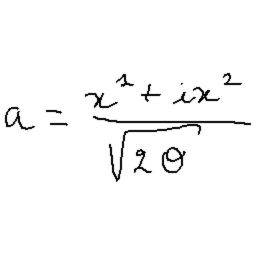 a = \frac{x^1 + ix^2}{\sqrt{2\theta}}